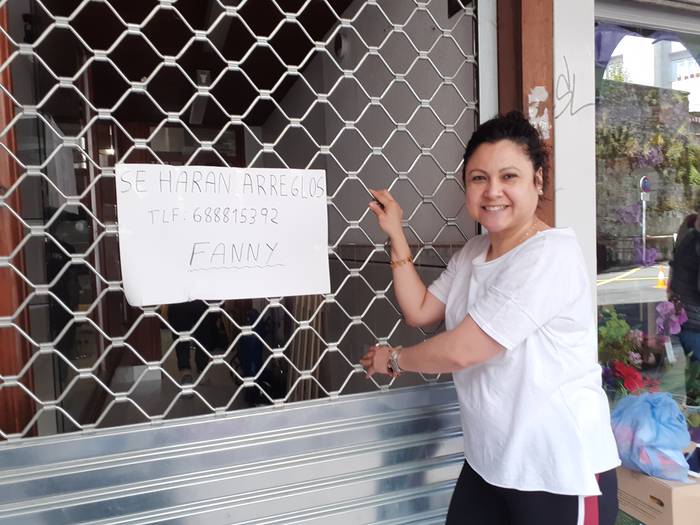 SE HARAN ARREGLOS
TLF: 688815392
FANNY